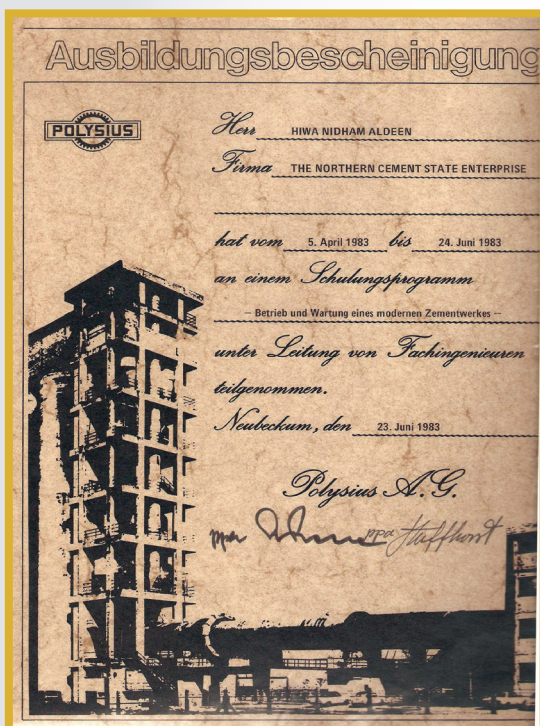 Ausbildungsbescheinigung
POLYSIUS
Herr HIWA NIDHAM ALDEEN
Firma THE NORTHERN CEMENT STATE ENTERPRISE
hat vom 5. April 1983 bis 24. Juni 1983
an einem Schulungsprogramm
– Betrieb und Wartung eines modernen Zementwerkes –
unter Leitung von Fachingenieuren
teilgenommen.
Neubeckum, den 23. Juni 1983
Polysius A.G.
ppa ppa